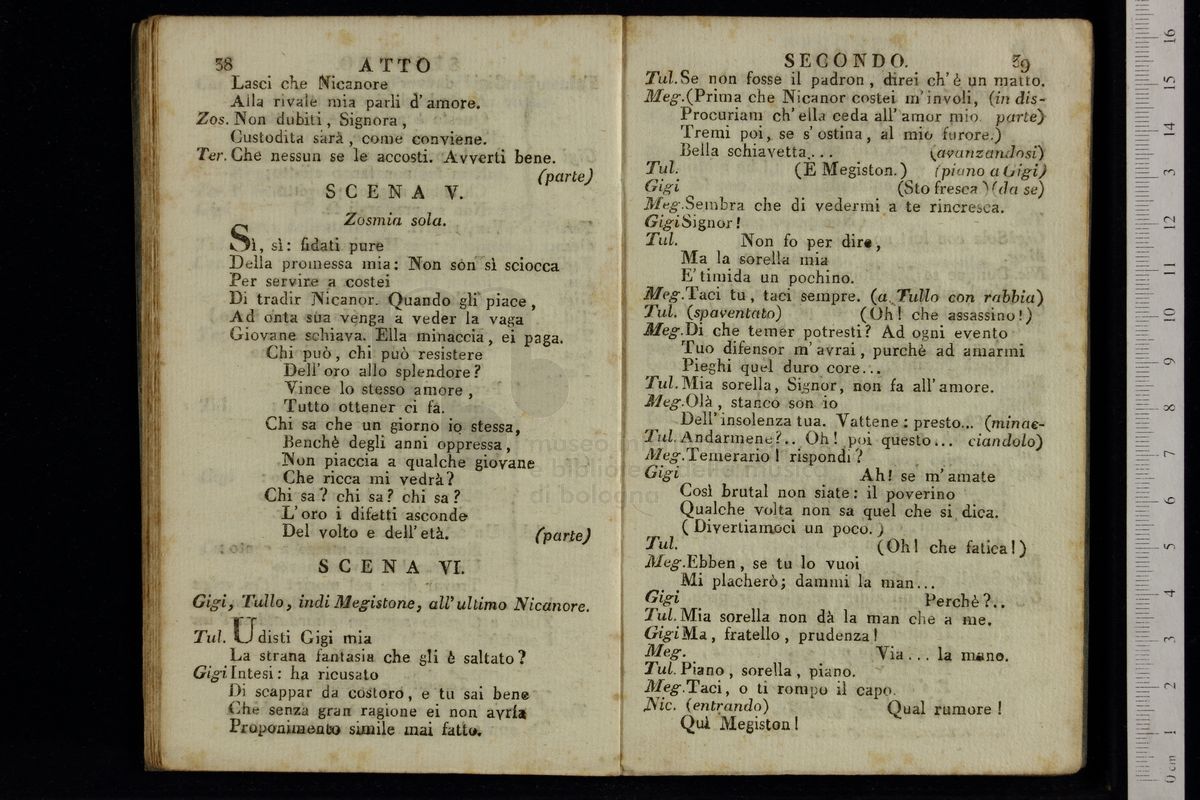 38 ATTO
Lasci che Nicanore
Alla rivale mia parli d'amore.
Zos. Non dubiti, Signora,
Custodita sarà, come conviene.
Ter. Che nessun se le accosti. Avverti bene.
(parte)
SCENA V.
Zosmia sola.
Sì, sì: fidati pure
Della promessa mia: Non son sì sciocca
Per servire a costei
Di tradir Nicanor. Quando gli piace,
Ad onta sua venga a veder la vaga
Giovane schiava. Ella minaccia, ei paga.
Chi può, chi può resistere
Dell'oro allo splendore?
Vince lo stesso amore,
Tutto ottener ci fa.
Chi sa che un giorno io stessa,
Benchè degli anni oppressa,
Non piaccia a qualche giovane
Che ricca mi vedrà?
Chi sa? chi sa? chi sa?
L'oro i difetti asconde
Del volto e dell'età. (parte)
SCENA VI.
Gigi, Tullo, indi Megistone, all'ultimo Nicanore.
Tul. Udisti Gigi mia
La strana fantasia che gli è saltato?
Gigi Intesi: ha ricusato
Di scappar da costoro, e tu sai bene
Che senza gran ragione ei non avrìa
Proponimento simile mai fatto.
SECONDO. 39
Tul. Se non fosse il padron, direi ch'è un matto.
Meg. (Prima che Nicanor costei m'involi, (in dis-
Procuriam ch'ella ceda all'amor mio. parte)
Tremi poi, se s'ostina, al mio furore.)
Bella schiavetta.... (avanzandosi)
Tul. (E Megiston.) (piano a Gigi)
Gigi (Sto fresca) (da se)
Meg. Sembra che di vedermi a te rincresca.
Gigi Signor!
Tul. Non fo per dire,
Ma la sorella mia
E' timida un pochino.
Meg. Taci tu, taci sempre. (a Tullo con rabbia)
Tul. (spaventato) (Oh! che assassino!)
Meg. Di che temer potresti? Ad ogni evento
Tuo difensor m'avrai, purchè ad amarmi
Pieghi quel duro core...
Tul. Mia sorella, Signor, non fa all'amore.
Meg. Olà, stanco son io
Dell'insolenza tua. Vattene: presto... (minac-
Tul. Andarmene?.. Oh! poi questo... ciandolo)
Meg. Temerario! rispondi?
Gigi Ah! se m'amate
Così brutal non siate: il poverino
Qualche volta non sa quel che si dica.
(Divertiamoci un poco.)
Tul. (Oh! che fatica!)
Meg. Ebben, se tu lo vuoi
Mi placherò; dammi la man...
Gigi Perchè?..
Tul. Mia sorella non dà la man che a me.
Gigi Ma, fratello, prudenza!
Meg. Via... la mano.
Tul. Piano, sorella, piano.
Meg. Taci, o ti rompo il capo.
Nic. (entrando) Qual rumore!
Quì Megiston!